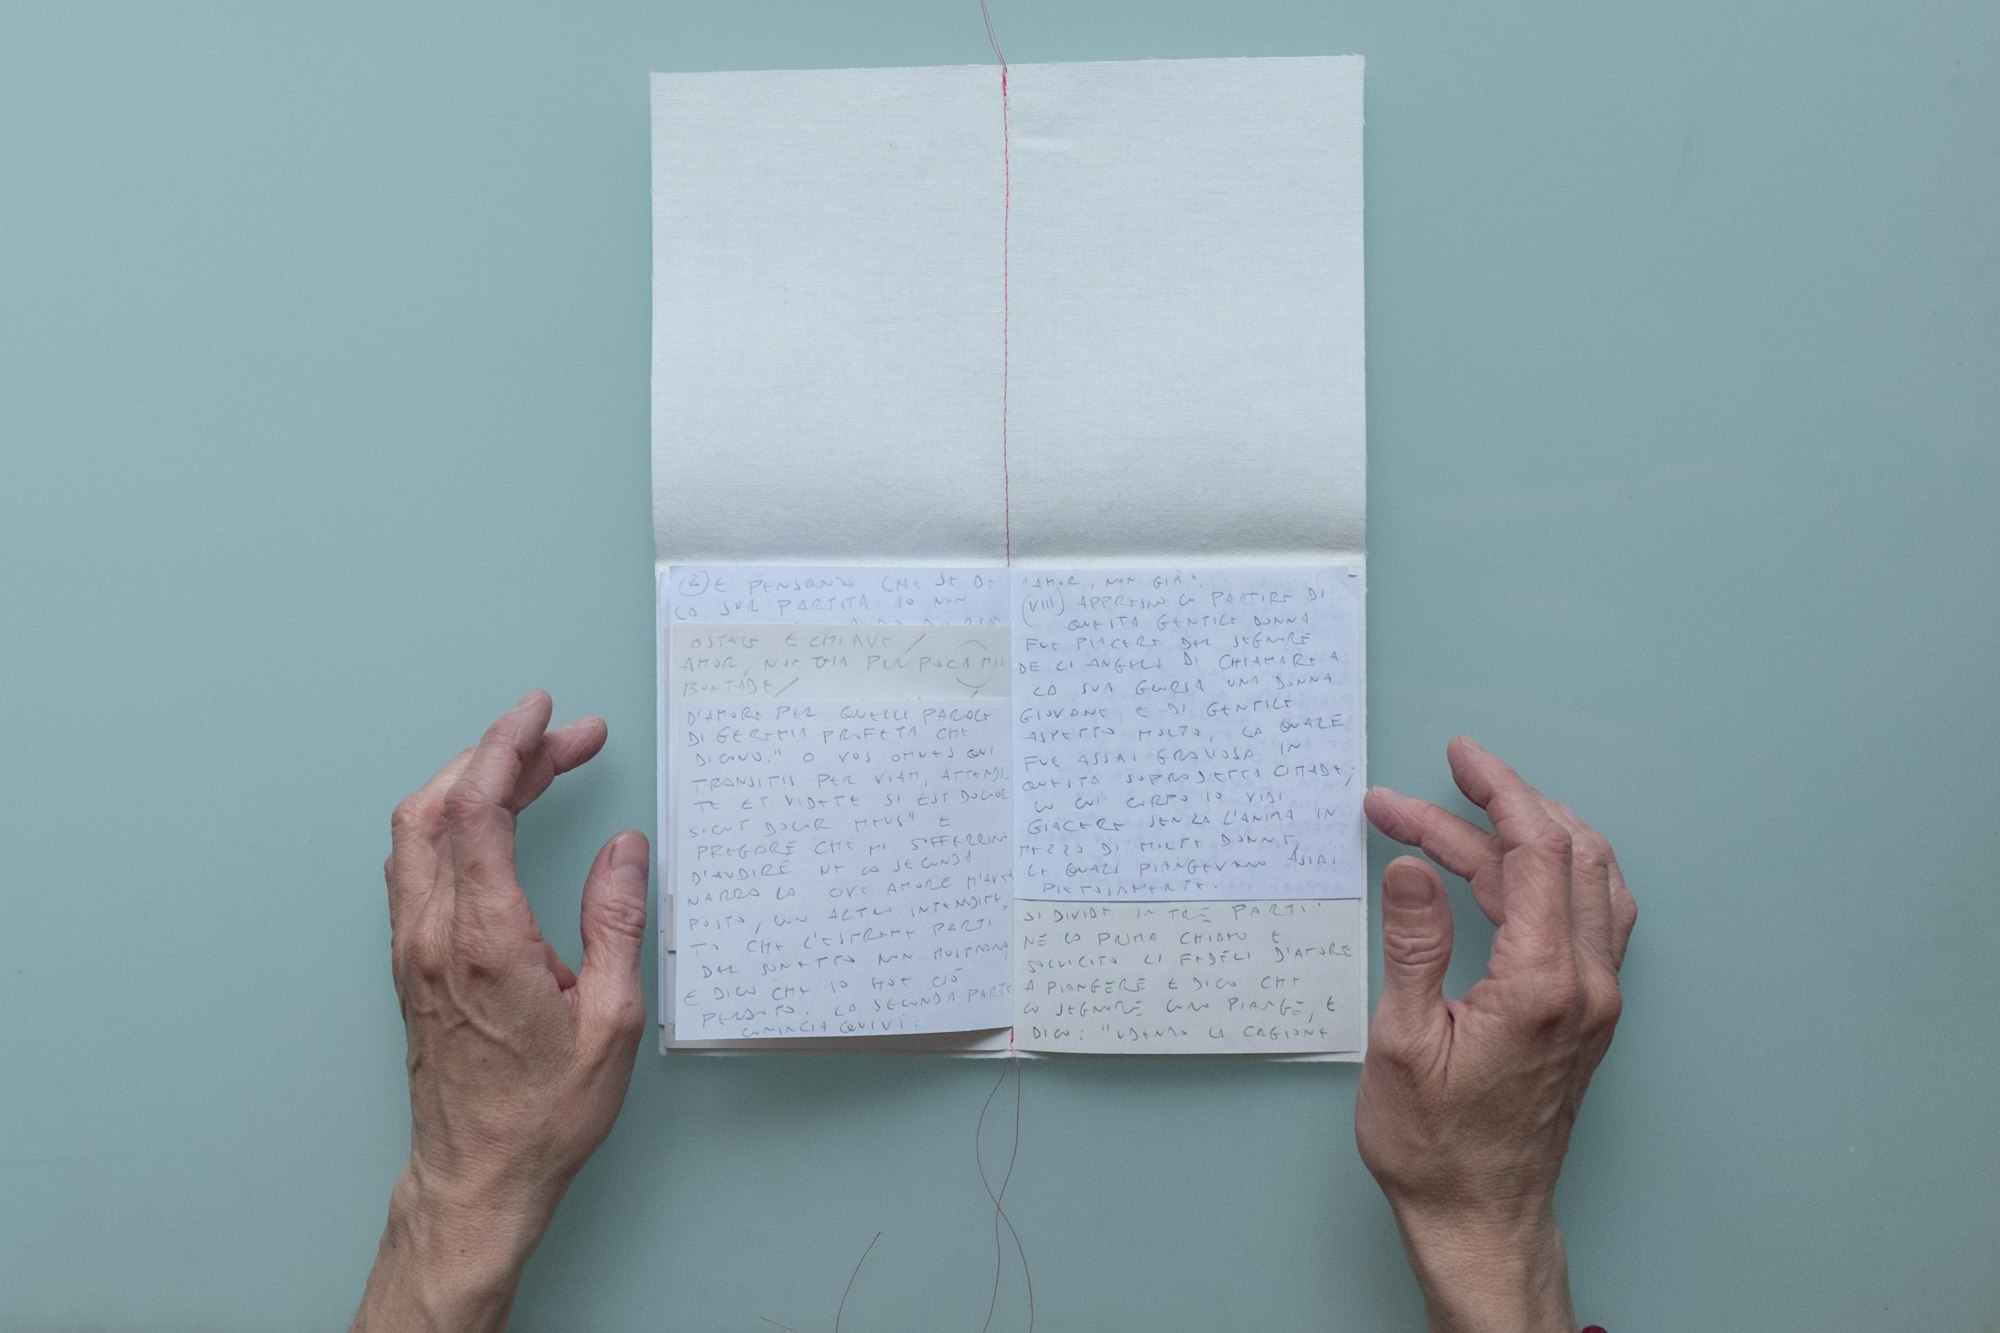 (2) E PENSANDO CHE SE DE
LA SUA PARTITA IO NON
OSTALE E CHIAVE /
AMOR, NON GIA PER POCA MIA
BONTADE /
D'AMORE PER QUELLE PAROLE
DI GEREMIA PROFETA CHE
DICONO: "O VOS OMNES QUI
TRANSITIS PER VIAM, ATTENDI-
TE ET VIDETE SI EST DOLOR
SICUT DOLOR MEUS" E
PREGARE CHE MI SOFFERINO
D'AUDIRE NE LA SECONDA
NARRO LA OVE AMORE M'AVEA
POSTO, CON ALTRO INTENDIMEN-
TO CHE L'ESTREME PARTI
DEL SONETTO NON MOSTRANO,
E DICO CHE IO HOE CIÒ
PERDUTO. LA SECONDA PARTE
COMINCIA QUIVI:
"AMOR, NON GIÀ".
(VIII) APPRESSO LO PARTIRE DI
QUESTA GENTILE DONNA
FUE PIACERE DEL SEGNORE
DE LI ANGELI DI CHIAMARE A
LA SUA GLORIA UNA DONNA
GIOVANE E DI GENTILE
ASPETTO MOLTO, LA QUALE
FUE ASSAI GRAZIOSA IN
QUESTA SOPRADETTA CITTADE;
LO CUI CORPO IO VIDI
GIACERE SENZA L'ANIMA IN
MEZZO DI MOLTE DONNE,
LE QUALI PIANGEVANO ASSAI
PIETOSAMENTE.
SI DIVIDE IN TRE PARTI:
NE LA PRIMA CHIAMO E
SOLLICITO LI FEDELI D'AMORE
A PIANGERE E DICO CHE
LO SEGNORE LORO PIANGE, E
DICO: "UDENDO LA CAGIONE